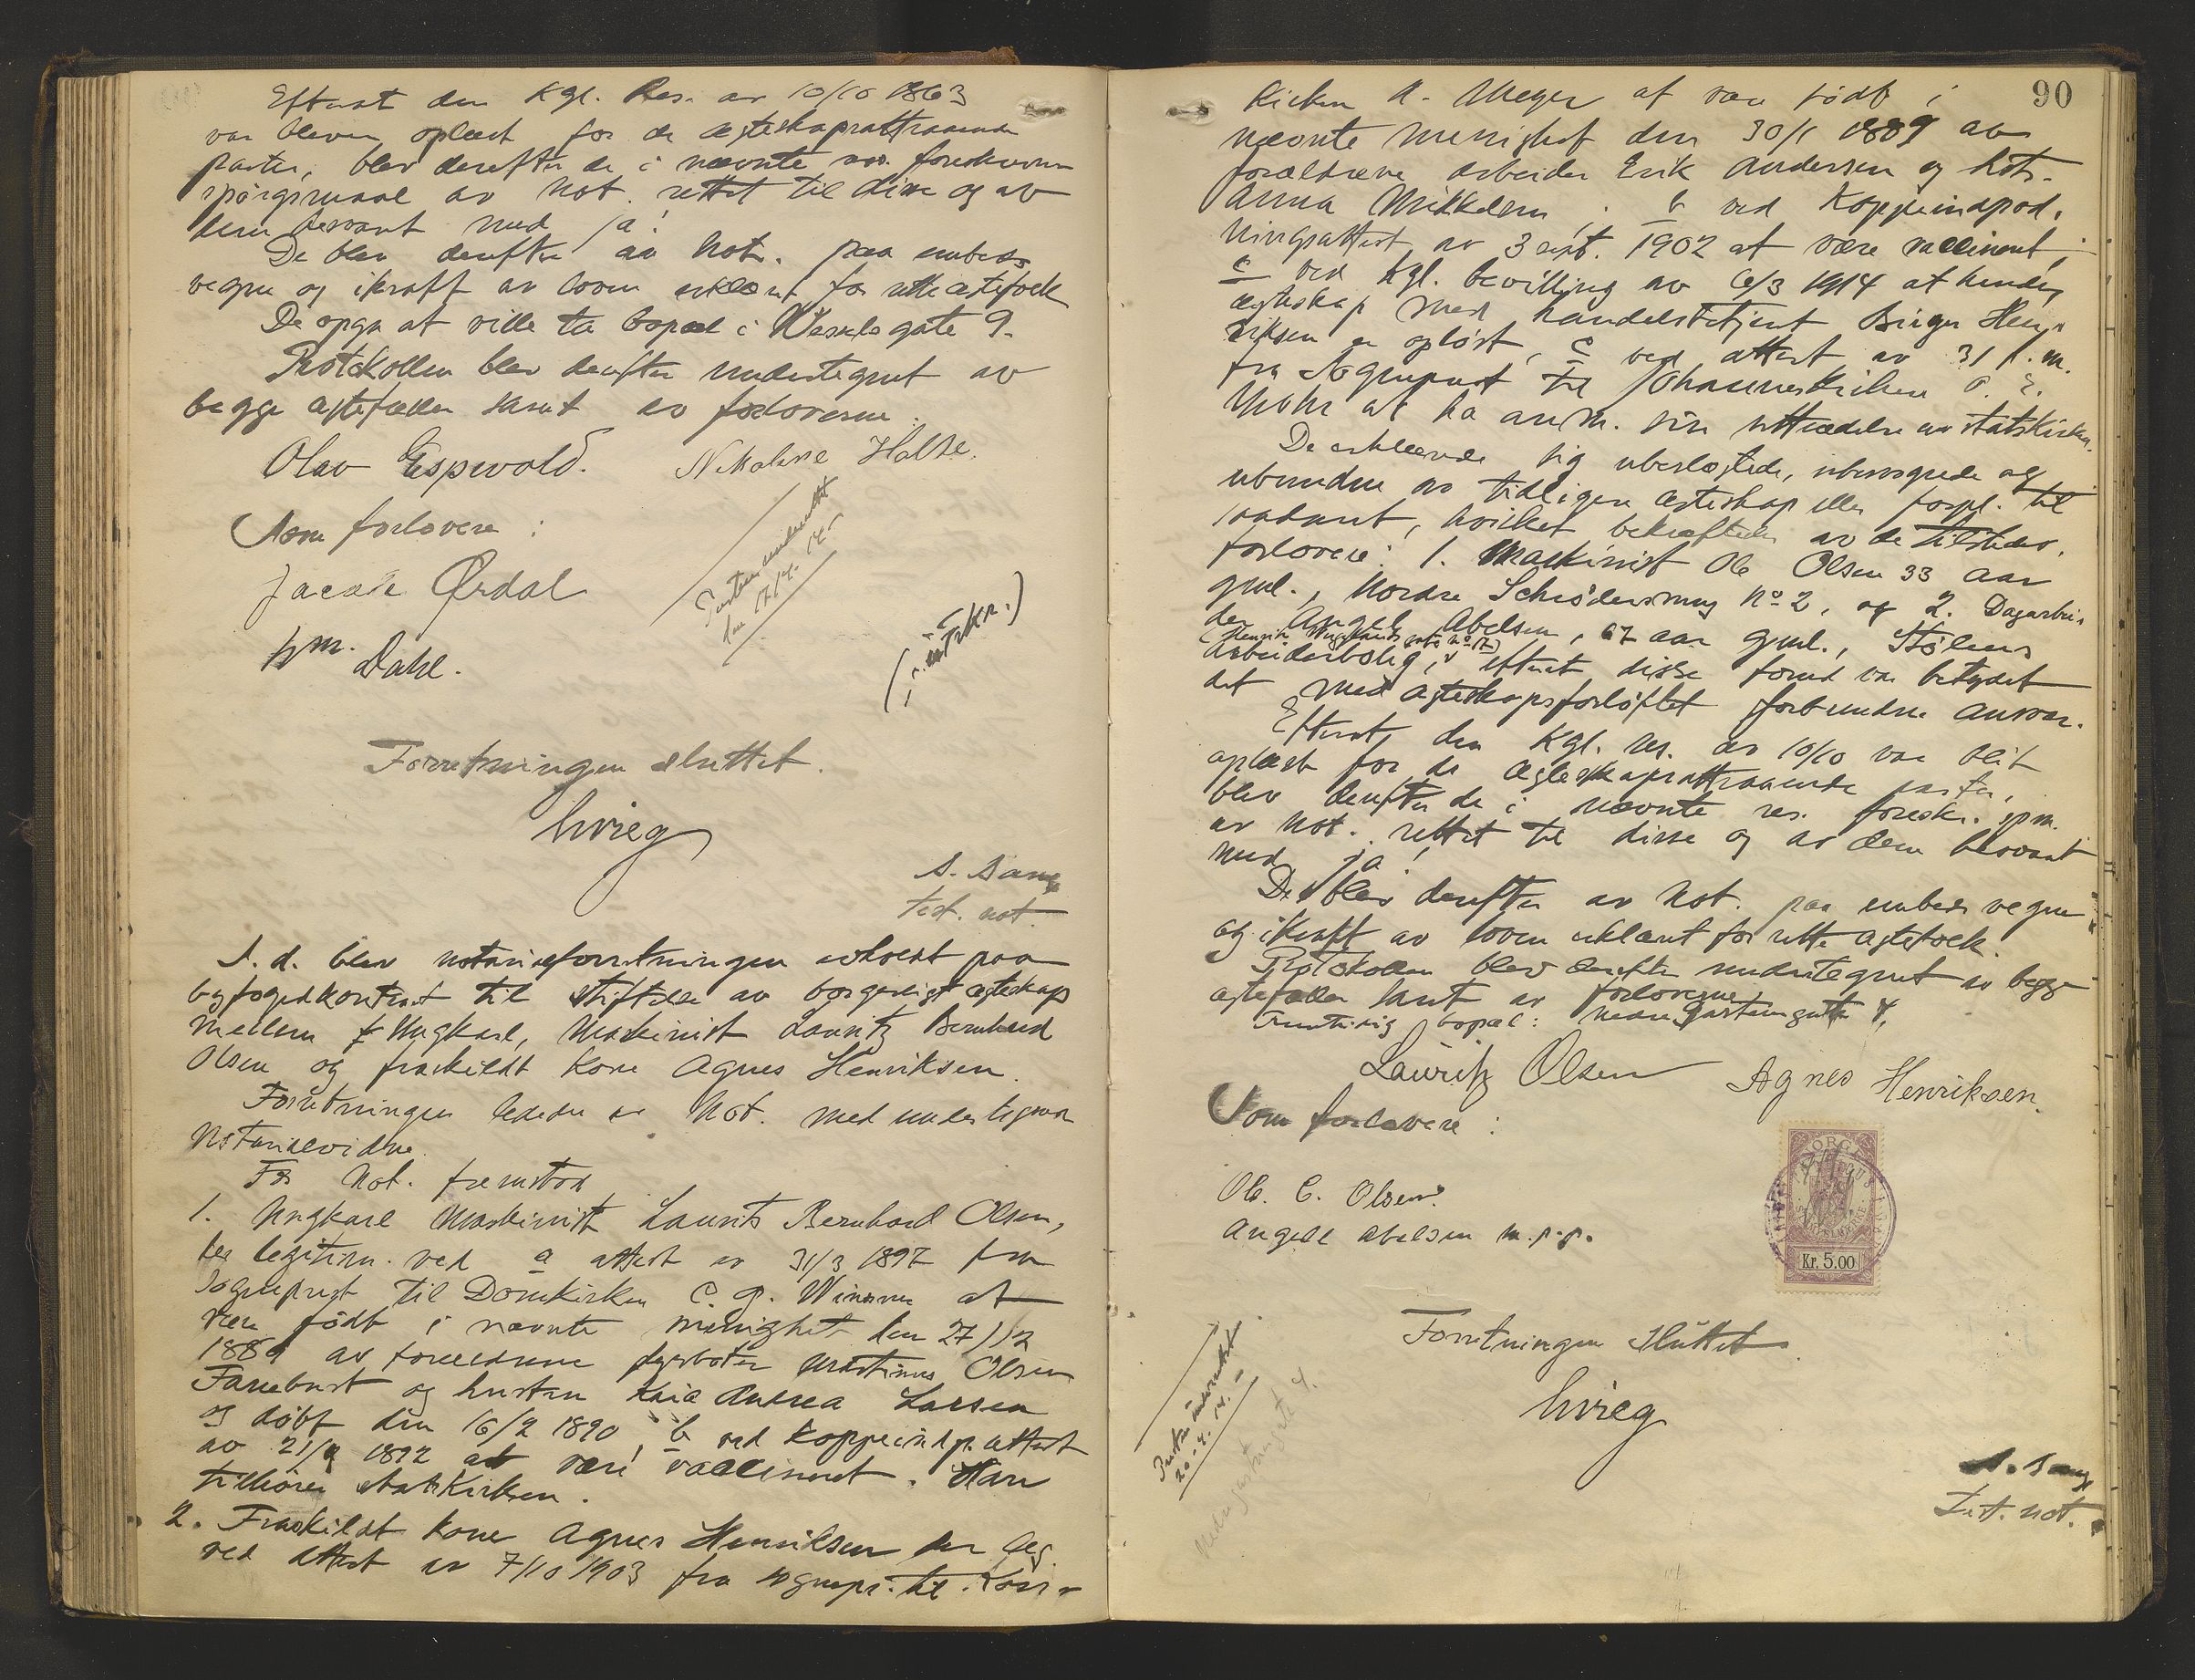 Efterat den Kgl. Res. av 10/10 1863
var bleven oplæst for de ægteskapsattraaende
parter, blev derefter de i nævnte res. foreskrevne
spörgsmaal av Not. rettet til disse og av
dem besvart med ja!
De blev derefter av Not. paa embeds
vegne og ikraft av loven erklært for rette ægtefolk
De opga at ville ta bopæl i Wessels gate 9.
Protokollen blev derefter undertegnet av
begge ægtefæller samt av forloverne.
Olav Espevold. Nikoline Holse.
Som forlovere:
Jacob Ørdal
Dahl.
Parten meddelt
den 17/4. 14.
Forretningen sluttet.
Grieg
S. Bang
test. not.
S. d. blev notarialforretningen avholdt paa
byfogedkontoret til stiftelse av borgerligt ægteskap
mellem Ungkarl, Maskinist Lauritz Bernhard
Olsen og fraskildt kone Agnes Henriksen.
Forretningen lededes av Not. med undertegnede
Notarialvidne.
For Not. fremstod
1. Ungkarl Maskinist Laurits Bernhard Olsen,
der legitim. ved a attest av 31/3 1897 fra
Sogneprest til Domkirken C. P. Winsnes at
være födt i nævnte menighet den 27/12
1889 av forældrene fyrböter Kristinus Olsen
Fanebust og hustru Kaia Andrea Larsen
og döbt den 16/2 1890, b ved koppeindp. attest
av 21/9 1892 at være vaccineret. Han
tilhörer statskirken.
2. Fraskildt kone Agnes Henriksen der leg.
ved attest av 7/10 1903 fra sognepr. til Kors-
90
kirken A. Meyer at være födt i
nævnte menighet den 30/1 1889 av
forældrene arbeider Erik Andersen og hstr.
Anna Mikkelsen; b ved Koppeindpod-
ningsattest av 3 sept. 1902 at være vaccineret;
c ved Kgl. bevilling av 6/3 1914 at hendes
ægteskap med handelsbetjent Birger Hen-
riksen er oplöst, c ved attest av 31 f. m.
fra Sogneprest til Johanneskirken O. E.
Mohn at ha anm. sin uttrædelse av statskirken.
De erklærede sig ubeslegtede, ubesvogrede og
ubundne av tidligere ægteskap eller forpl. til
saadant, hvilket bekræftedes av de tilstedev.
forlovere: 1. Maskinist Ole Olsen 33 aar
gml., Nordre Schrödersmug No 2, og 2. Dagarbei-
der Angel Abelsen, 67 aar gml., Stölens
(Henrik Wergelands gate No 17)
Arbeiderbolig, efterat disse forud var betydet
det med ægteskapsforlöftet forbundne ansvar.
Efterat den Kgl. res. av 10/10 var blit
oplæst for de ægteskapsattraaende parter,
blev derefter de i nævnte res. foreskr. spm.
av Not. rettet til disse og av dem besvart
med ja!
De blev derefter av Not. paa embeds vegne
og ikraft av loven erklært for rette ægtefolk.
Protokollen blev derefter undertegnet av begge
ægtefæller samt av forloverne.
Fremtidig bopæl: Nedre Hastensgate 4.
Lauritz Olsen Agnes Henriksen.
Som forlovere:
Ole. C. Olsen.
Angell Abelsen m. p. p.
NORGE
Kr. 5.00
20.4.14.
Forretningen sluttet
Grieg
S. Bang
Test. not.